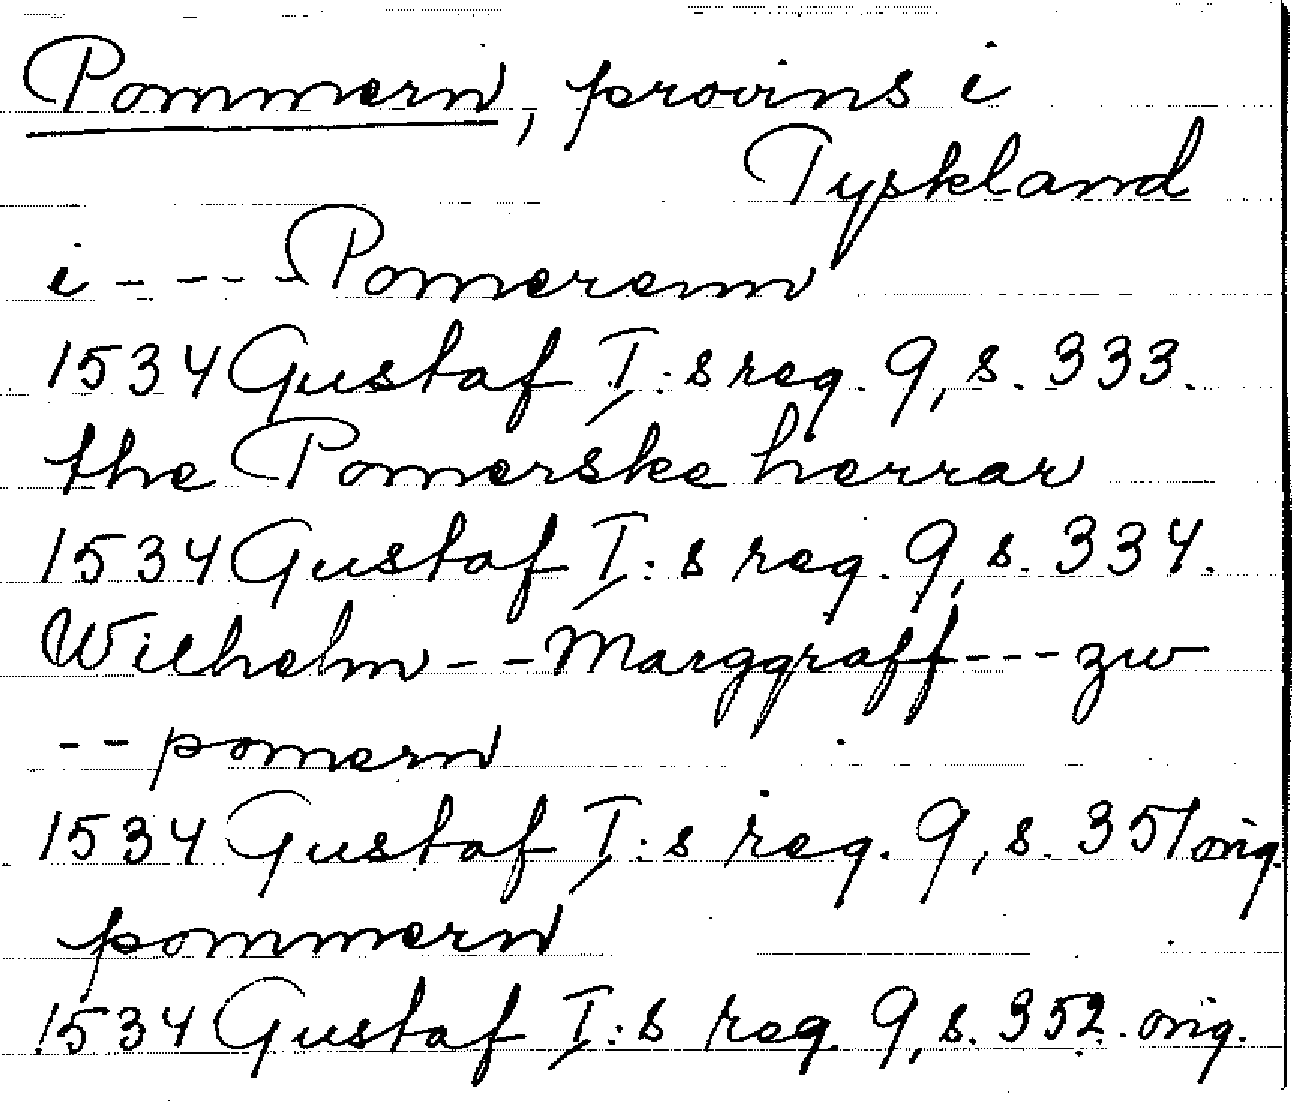 Pommern, provins i
Tyskland
i - - - - Pomerenn
1534 Gustaf I:s reg. 9, s. 333.
the Pomerske herrar
1534 Gustaf I:s reg. 9, s. 334.
Wilhelm - - Marggraff - - - zw
- - pomern
1534 Gustaf I:s reg. 9, s. 351 orig.
pommern
1534 Gustaf I:s reg. 9, s. 352. orig.